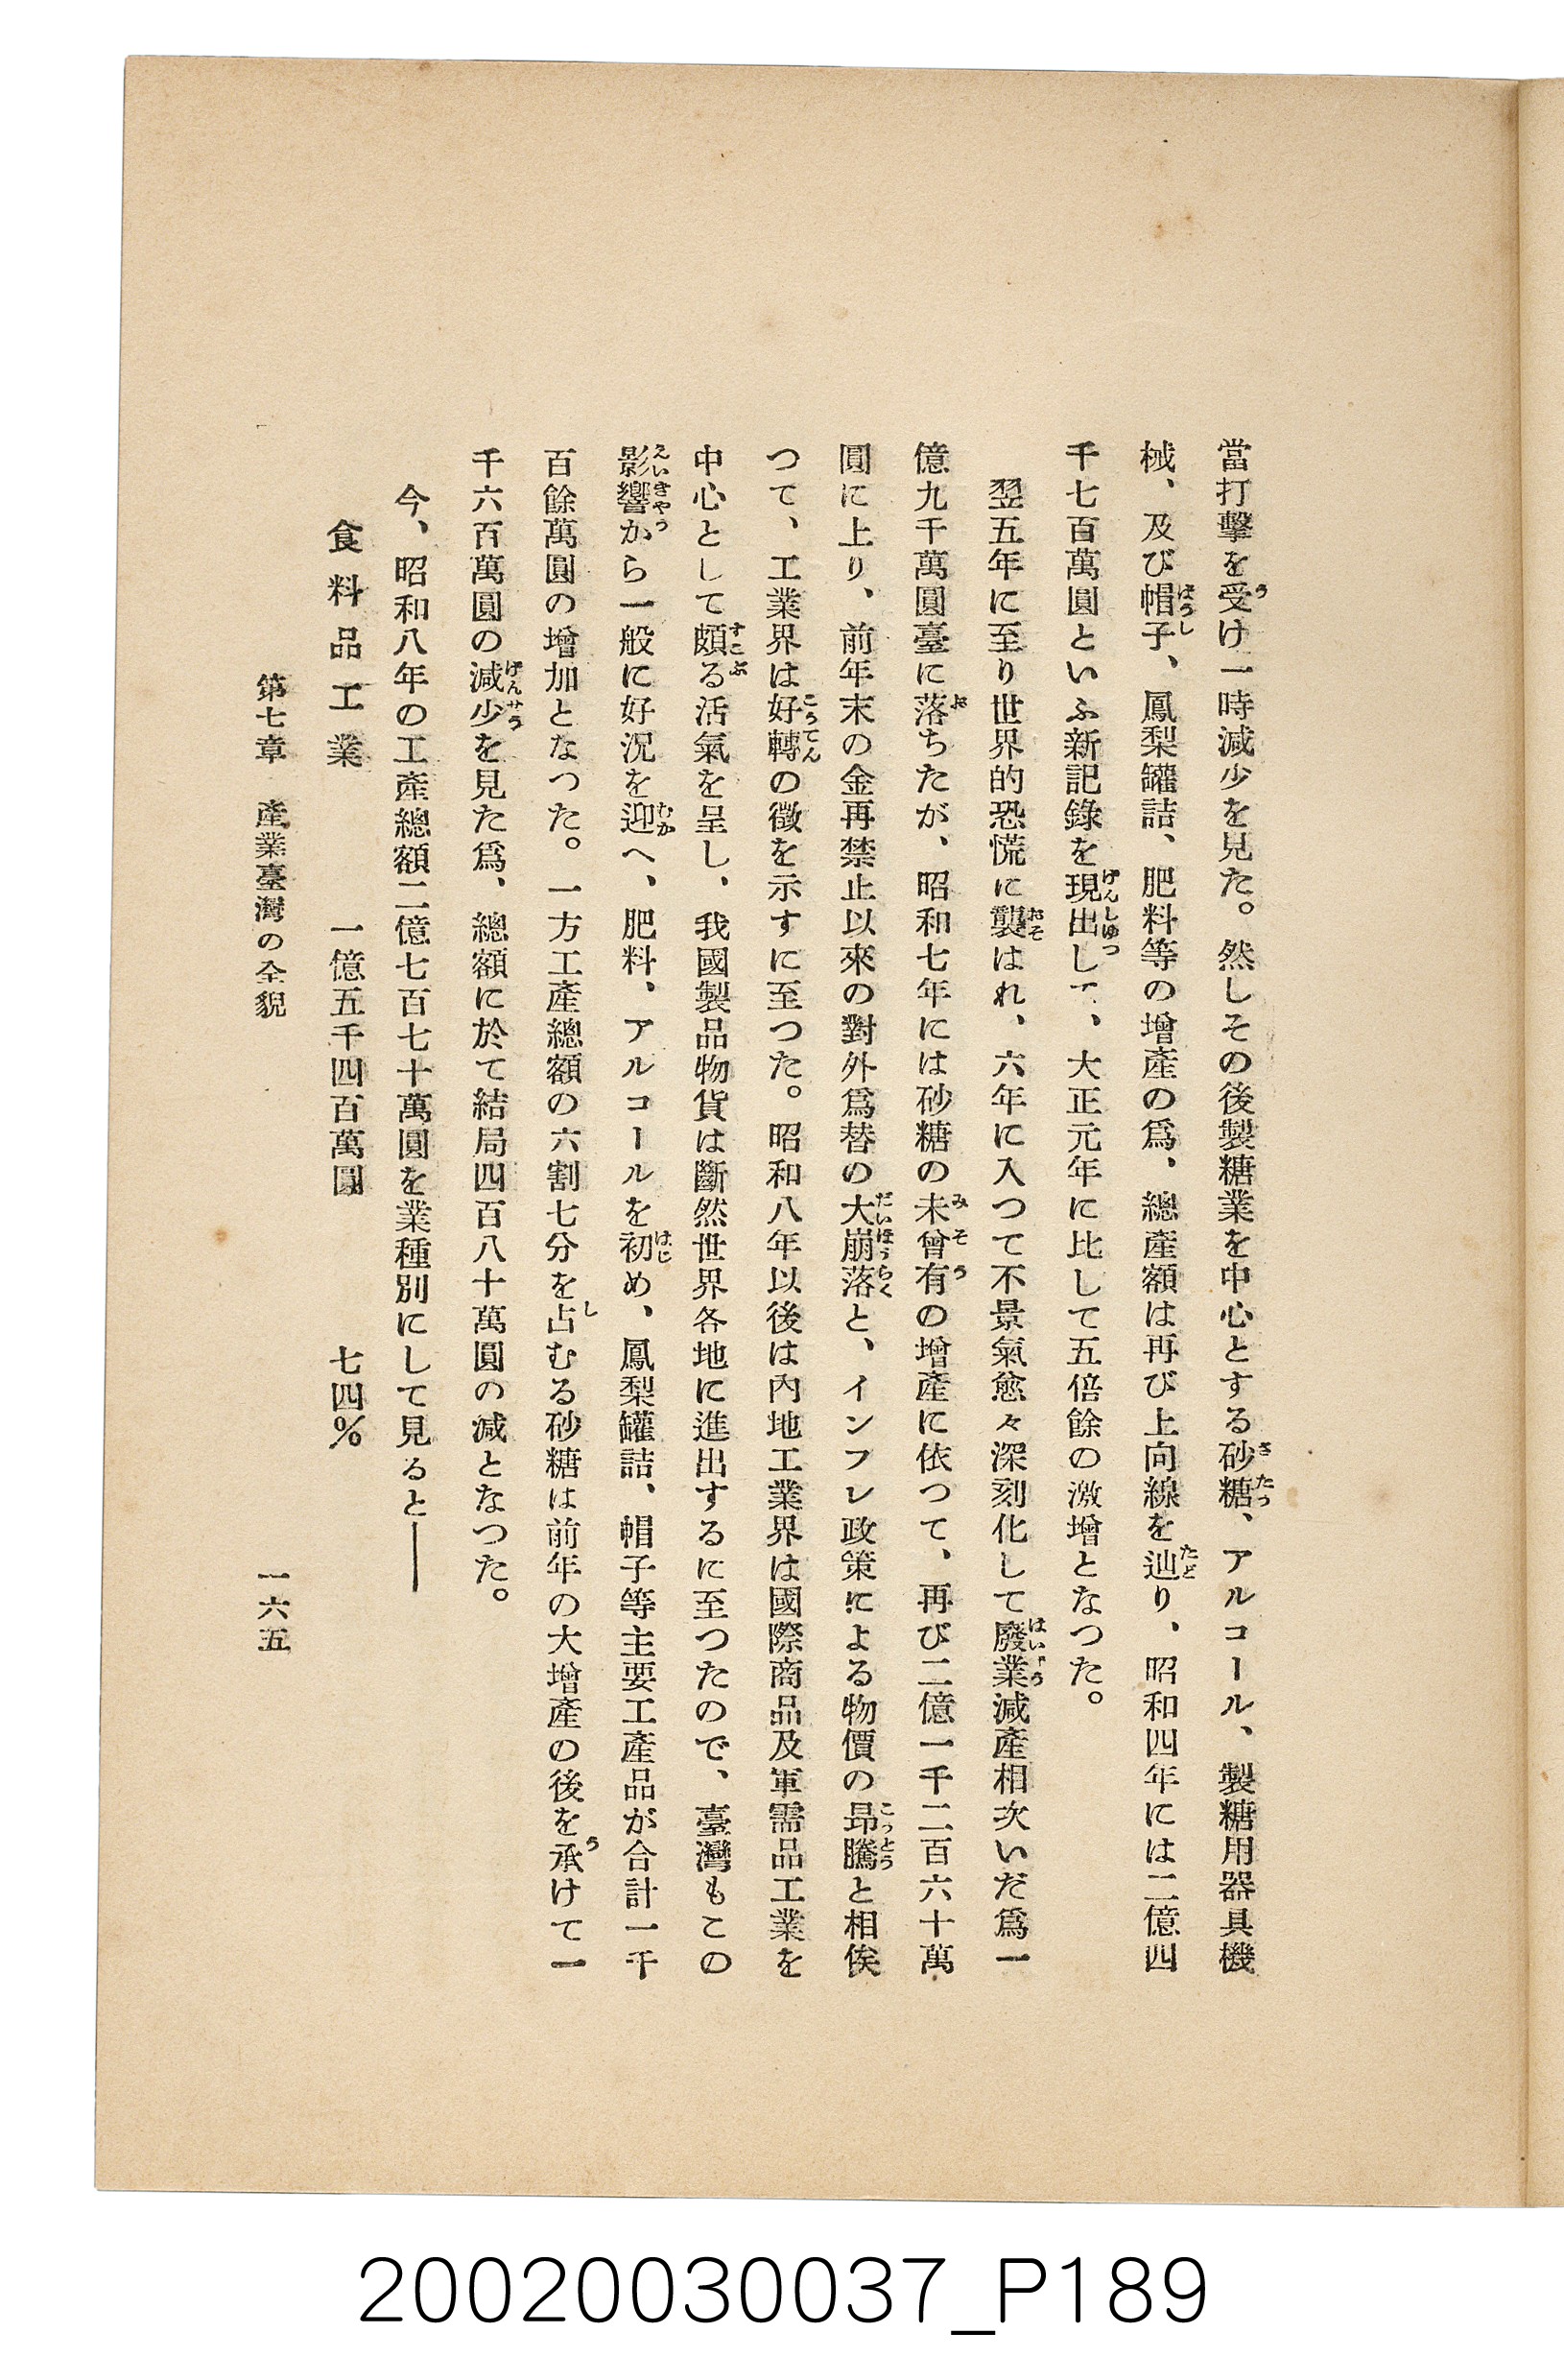 當打擊を受け一時減少を見た。然しその後製糖業を中心とする砂糖、アルコール、製糖用器具機
械、及び帽子、鳳梨罐詰、肥料等の增產の爲、總產額は再び上向線を辿り、昭和四年には二億四
千七百萬圓といふ新記錄を現出して、大正元年に比して五倍餘の激增となつた。
翌五年に至り世界的恐慌に襲はれ、六年に入つて不景氣愈々深刻化して廢業減產相次いだ爲一
億九千萬圓臺に落ちたが、昭和七年には砂糖の未曾有の增產に依つて、再び二億一千二百六十萬
圓に上り、前年末の金再禁止以來の對外爲替の大崩落と、インフレ政策による物價の昻騰と相俟
つて、工業界は好轉の徵を示すに至つた。昭和八年以後は內地工業界は國際商品及軍需品工業を
中心として頗る活氣を呈し、我國製品物貨は斷然世界各地に進出するに至つたので、臺灣もこの
影響から一般に好況を迎へ、肥料、アルコールを初め、鳳梨罐詰、帽子等主要工產品が合計一千
百餘萬圓の增加となつた。一方工產總額の六割七分を占むる砂糖は前年の大增產の後を承けて一
千六百萬圓の減少を見た爲、總額に於て結局四百八十萬圓の減となつた。
今、昭和八年の工產總額二億七百七十萬圓を業種別にして見ると――
食料品工業 一億五千四百萬圓 七四%
第七章 產業臺灣の全貌 一六五
20020030037_P189